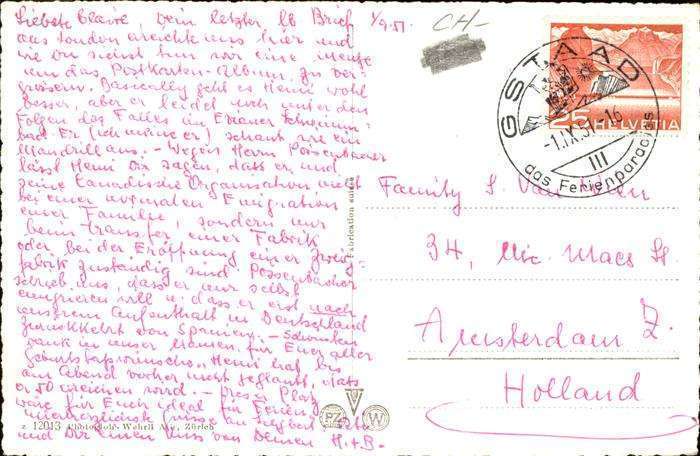 Liebste Claire, Dein letzter lb Brief 1/9.51.
aus London erreichte uns hier und
wie Du siehst hier wir eine
um das Postkarten-Album zu ver-
grössern. Basically geht es Henri wohl
besser, aber er leidet noch unter den
Folgen des Falles im Schwimm-
bad. Er (ich meine er) schaut wie ein
Mandrill aus. - Wegen Herrn Possenbacher
lässt Henri Dir sagen, dass er und
seine Canadische Organisation nicht
bei einer normalen Emigration
einer Familie, sondern nur
beim Transfer einer Fabrik
oder bei der Eröffnung einer Zweig-
fabrik zuständig sind. Possenbacher
schrieb uns, dass er nur selbst
emigrieren will u. dass er erst nach
unserem Aufenthalt in Deutschland
zurückkehrt von Spanien. - Schönsten
Dank in unser Namen für Euer aller
Geburtstagswünsche. Henri hat bis
am Abend vorher nicht geglaubt, dass
er 50 erreichen wird. - Dieser Platz
wäre für Euch ideal für Ferien,
und Dir einen Kuss von Deinen H.+B.
CH-
GSTAAD
-1.IX.51-16
III
das Ferienparadies
25 HELVETIA
Family S. Van
34, Mic. Macs St.
Amsterdam Z.
Holland
Fabrication suisse
PZ W
z 12013 Photo-Wehrli A.G., Zürich